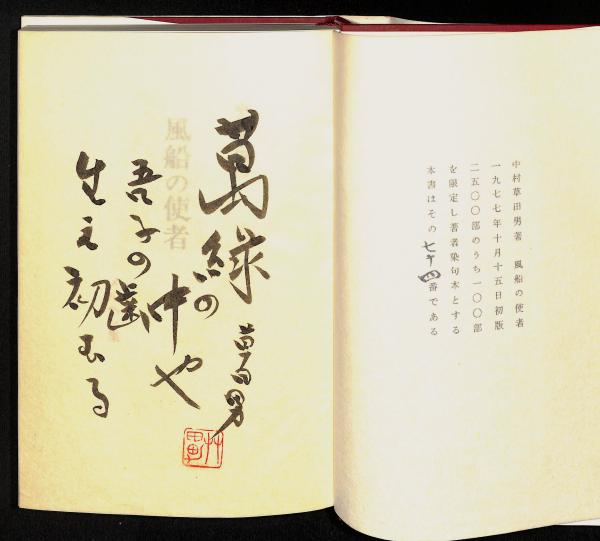 中村草田男著　風船の使者
一九七七年十月十五日初版
二五〇〇部のうち一〇〇部
を限定し著者染句本とする
本書はその七十四番である
萬緑の
中や
草田男
吾子の歯
生え初むる
風船の使者